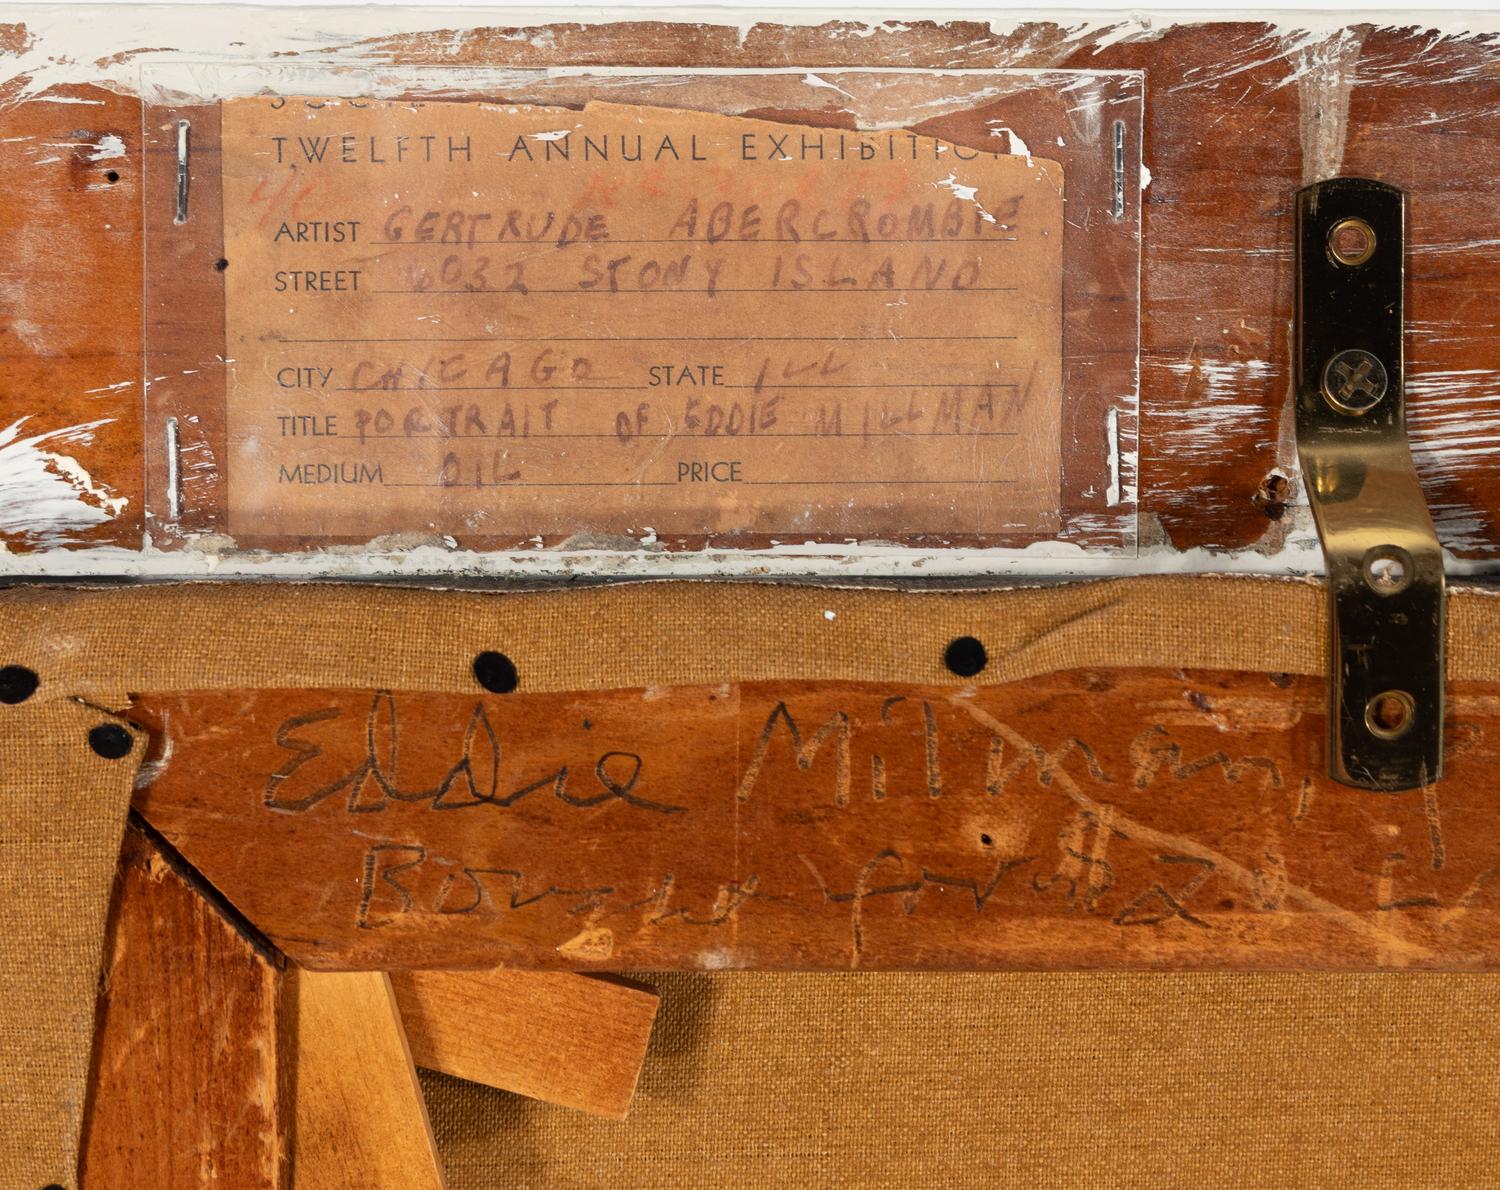 TWELFTH ANNUAL EXHIBITION
ARTIST GERTRUDE ABERCROMBIE
STREET 6032 STONY ISLAND
CITY CHICAGO STATE ILL
TITLE PORTRAIT OF EDDIE MILLMAN
MEDIUM OIL PRICE
Eddie Milman,
Bought for